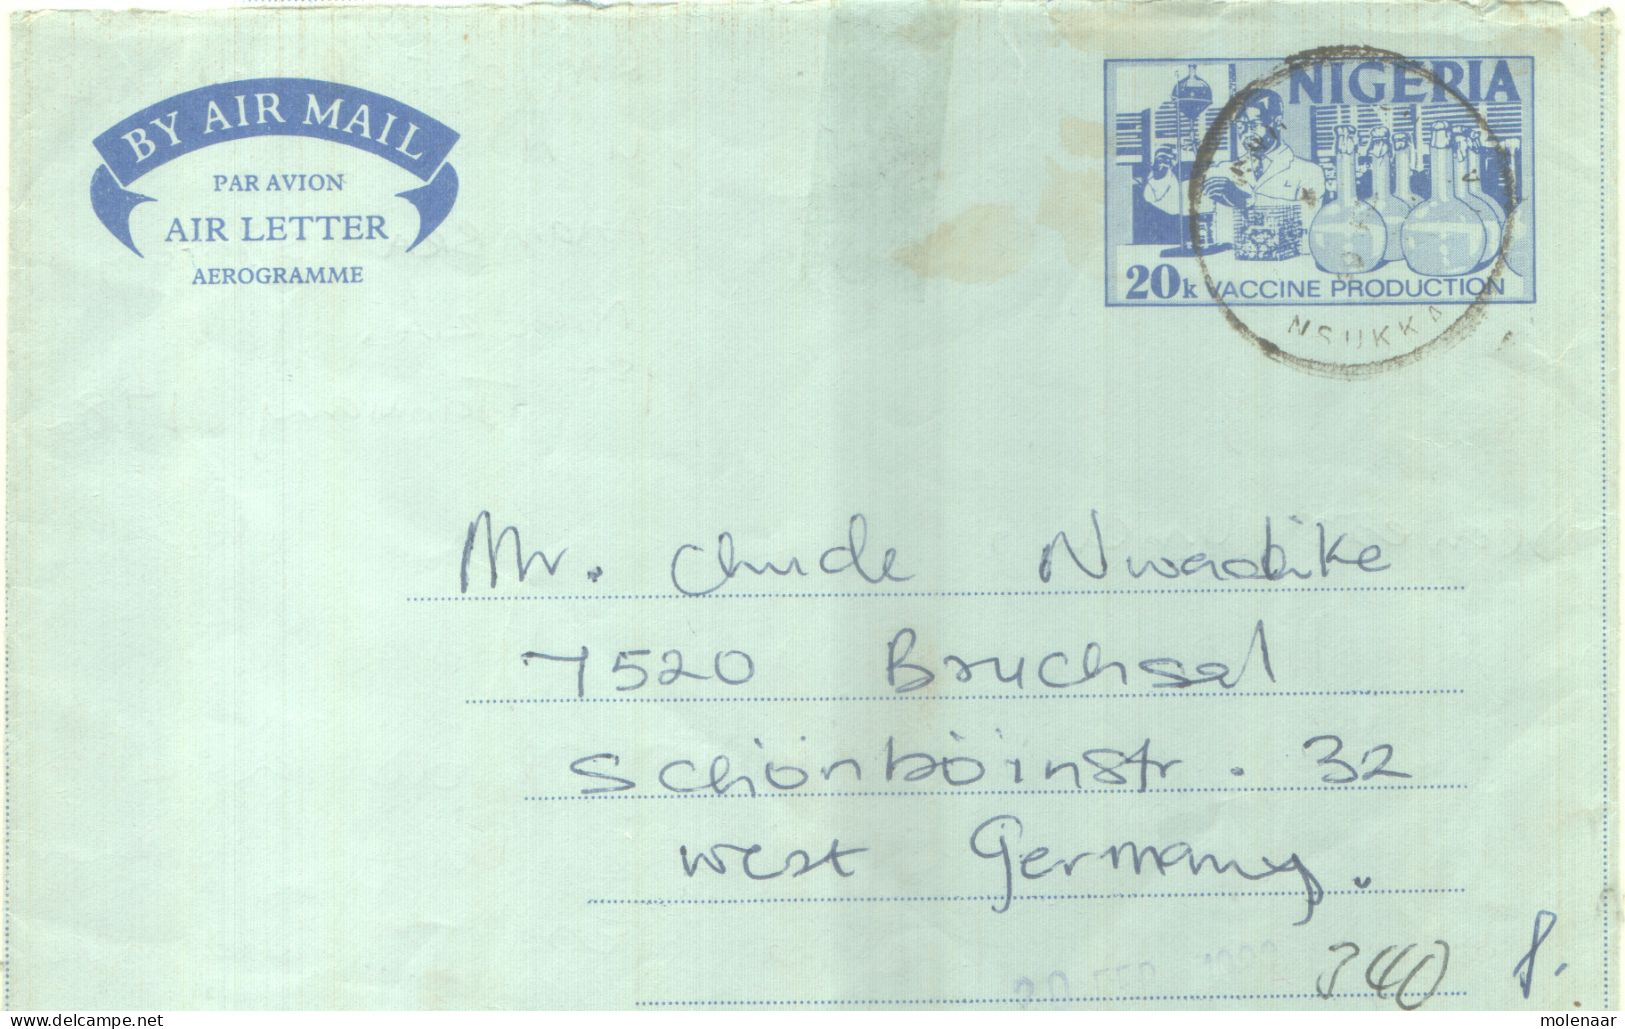 BY AIR MAIL
PAR AVION
AIR LETTER
AEROGRAMME
NIGERIA
20k VACCINE PRODUCTION
NSUKKA
Mr. Chude Nwadike
7520 Bruchsal
Schönböinstr. 32
West Germany.
340
© DELCAMPE
molenaar